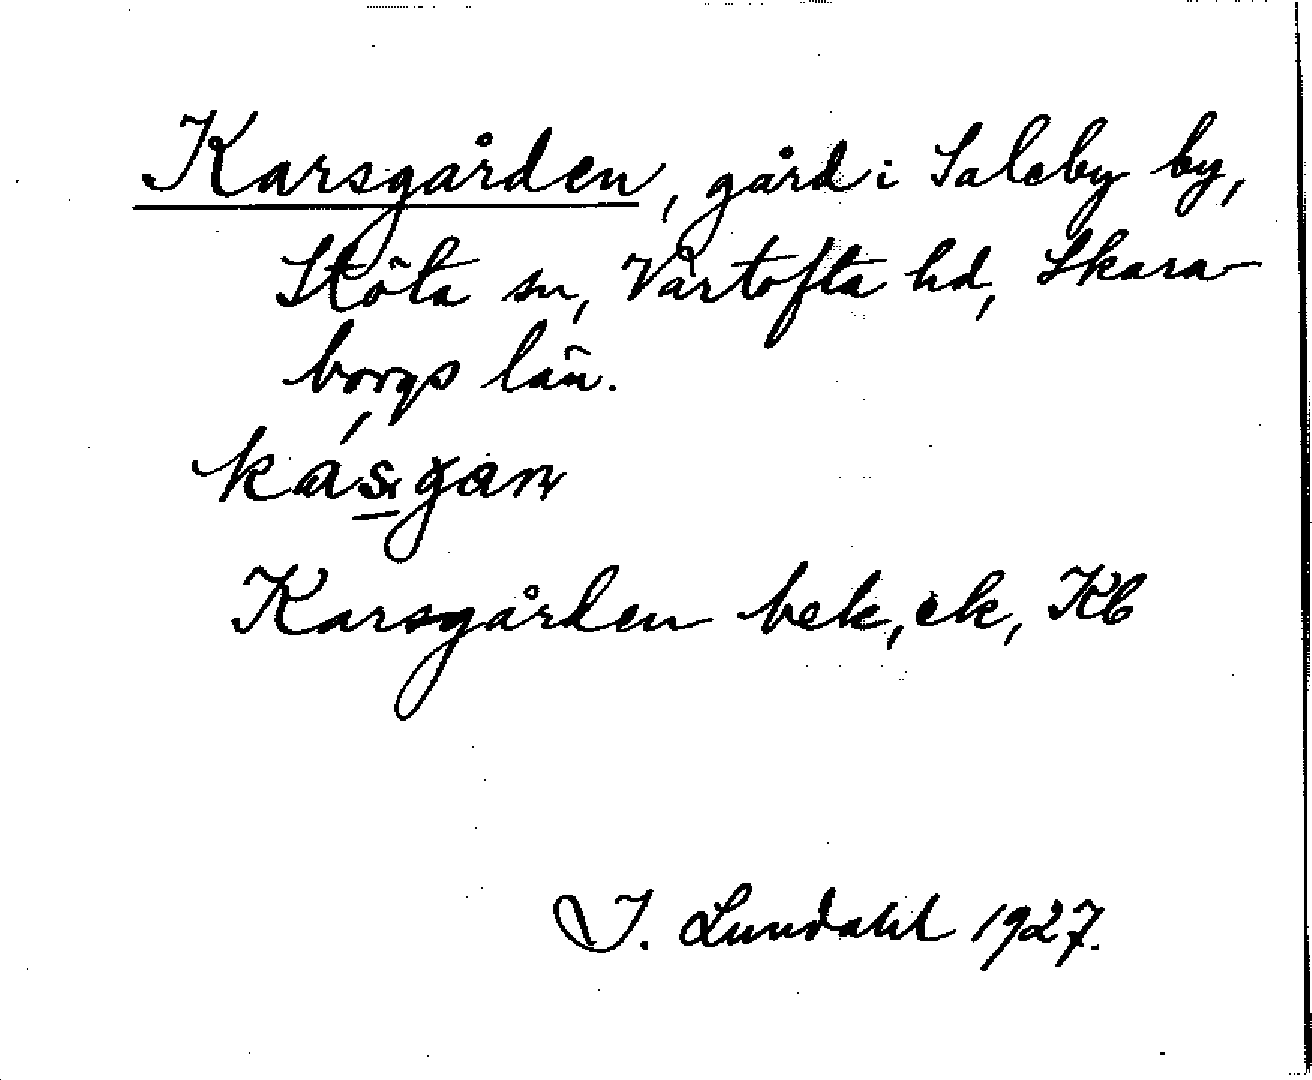 Karsgården, gård i Saleby by,
Stöta sn, Vartofta hd, Skara-
borgs län.
kásgan
Karsgården bek, ek, Kb
I. Lundahl 1927.